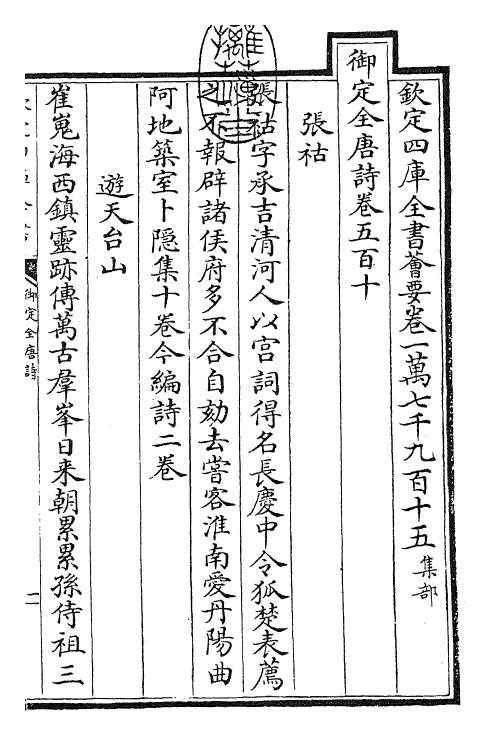 欽定四庫全書薈要卷一萬七千九百十五集部
御定全唐詩卷五百十
張祜
張祜字承吉清河人以宮詞得名長慶中令狐楚表薦
之不報辟諸侯府多不合自劾去嘗客淮南愛丹陽曲
阿地築室卜隠集十卷今編詩二卷
遊天台山
崔嵬海西鎮靈跡傳萬古羣峯日来朝累累孫侍祖三
御定全唐詩